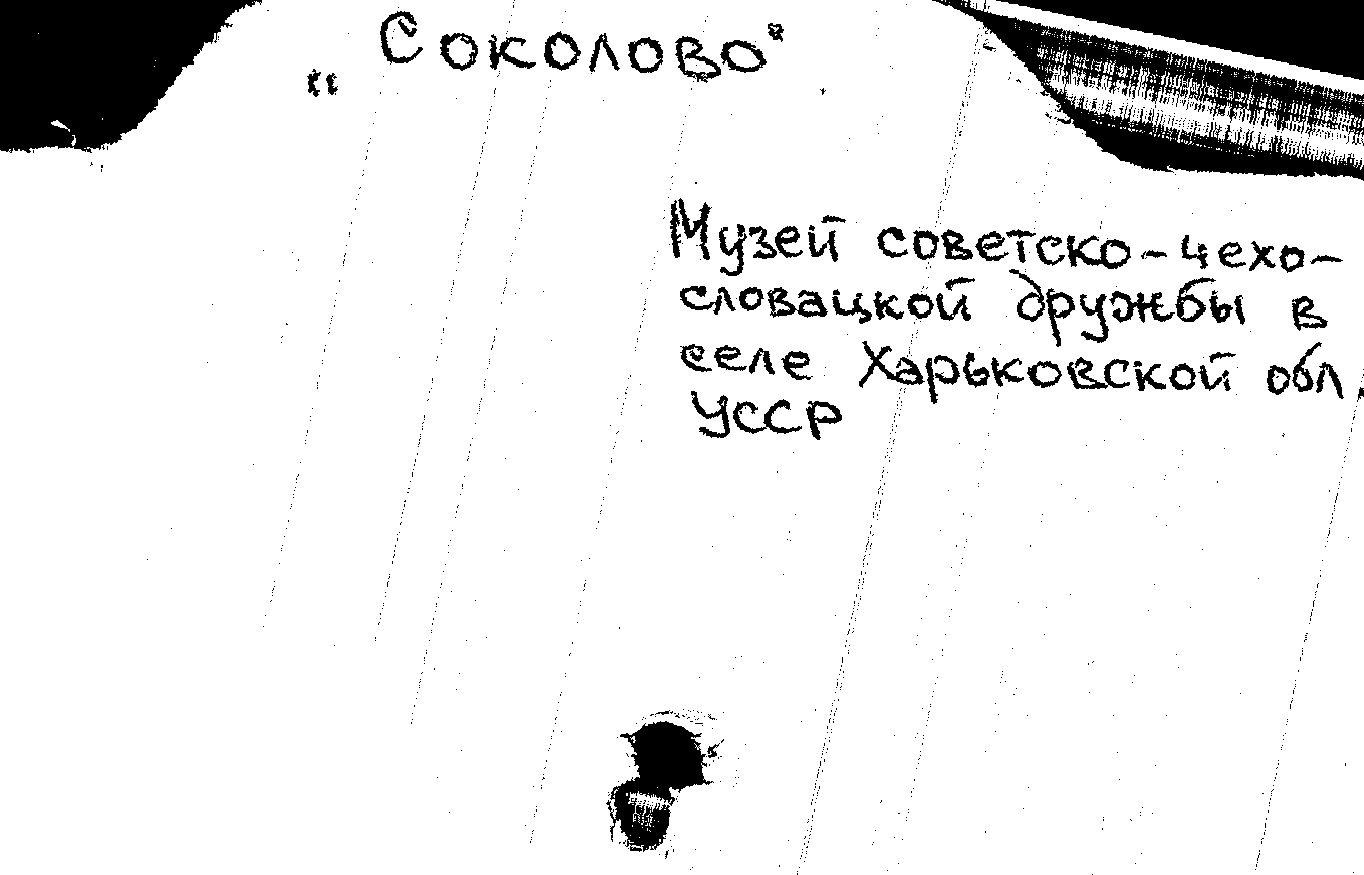 "Соколово"
Музей советско-чехо-
словацкой дружбы в
селе Харьковской обл.
УССР